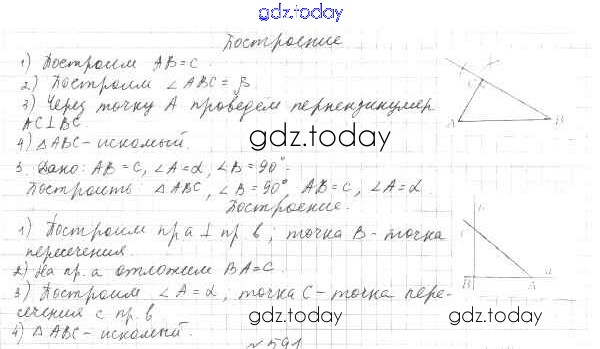 gdz.today
Построение
1) Построим AB=C.
2) Построим ∠ABC=β
3) Через точку A проведём перпендикуляр
AC⊥BC.
4) △ABC-искомый.
gdz.today
3. Дано: AB=C, ∠A=α, ∠B=90°.
Построить: △ABC, ∠B=90°, AB=C, ∠A=α.
Построение.
1) Построим пр a ⊥ пр. в; точка B - точка
пересечения.
2) На пр. a отложим BA=C.
3) Построим ∠A=α; точка C - точка пере-
сечения с пр. в
4) △ABC-искомый.
gdz.today
gdz.today
№591
A
B
B
A
a